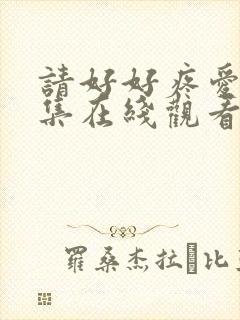 請好好疼愛
集在綫觀看
羅桑杰拉 比